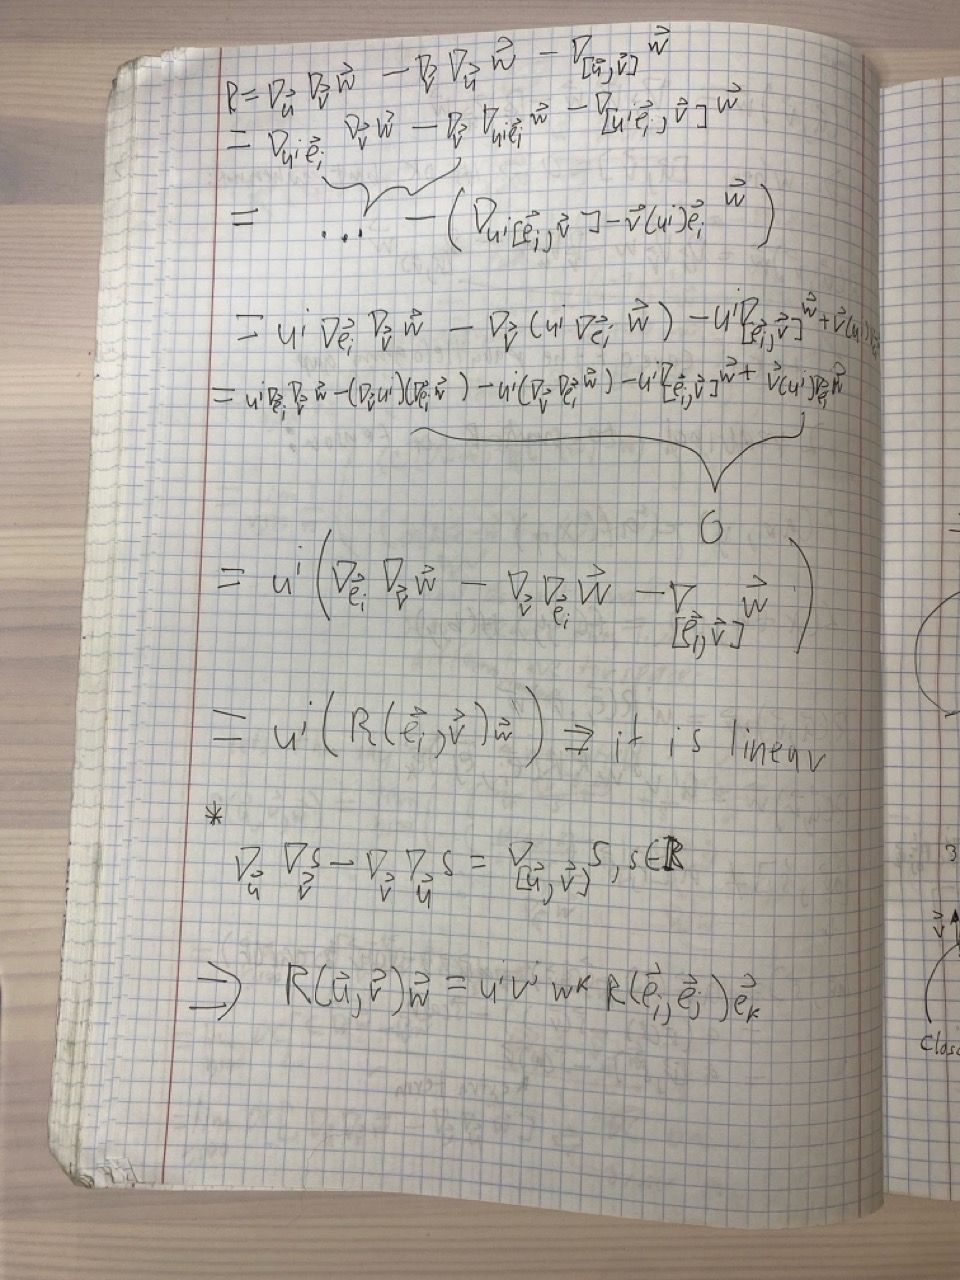 R = ∇_u⃗ ∇_v⃗ w⃗ − ∇_v⃗ ∇_u⃗ w⃗ − ∇_[u⃗, v⃗] w⃗
= ∇_{uⁱe⃗ᵢ} ∇_v⃗ w⃗ − ∇_v⃗ ∇_{uⁱe⃗ᵢ} w⃗ − ∇_[uⁱe⃗ᵢ, v⃗] w⃗
= ... − (∇_{uⁱ[e⃗ᵢ, v⃗] − v⃗(uⁱ)e⃗ᵢ} w⃗)
= uⁱ ∇_e⃗ᵢ ∇_v⃗ w⃗ − ∇_v⃗ (uⁱ ∇_e⃗ᵢ w⃗) − uⁱ∇_[e⃗ᵢ, v⃗] w⃗ + v⃗(uⁱ)
= uⁱ∇_e⃗ᵢ ∇_v⃗ w⃗ − (∇_v⃗ uⁱ)(∇_e⃗ᵢ w⃗) − uⁱ(∇_v⃗ ∇_e⃗ᵢ w⃗) − uⁱ∇_[e⃗ᵢ, v⃗] w⃗ + v⃗(uⁱ)∇_e⃗ᵢ w⃗
0
= uⁱ (∇_e⃗ᵢ ∇_v⃗ w⃗ − ∇_v⃗ ∇_e⃗ᵢ w⃗ − ∇_[e⃗ᵢ, v⃗] w⃗)
= uⁱ (R(e⃗ᵢ, v⃗) w⃗) ⇒ it is linear
*
∇_u⃗ ∇_v⃗ s − ∇_v⃗ ∇_u⃗ s = ∇_[u⃗, v⃗] s, s ∈ ℝ
⇒ R(u⃗, v⃗) w⃗ = uⁱ vʲ wᵏ R(e⃗ᵢ, e⃗ⱼ) e⃗ₖ
3
v⃗